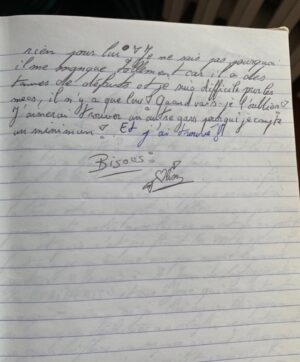 rien pour lui ! Je ne sais pas pourquoi
il me manque tellement car il a des
tonnes de défauts et je suis difficile pour les
mecs, il n'y a que lui ! Quand vais-je l'oublier ?
J'aimerai trouver un autre gars pour qui je compte
un minimum ! Et j'ai trouvé !!
Bisous :